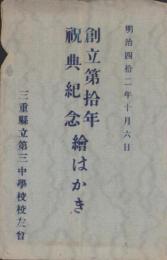 明治四拾二年十月六日
創立第拾年
祝典紀念繪はかき
三重縣立第三中學校校友會